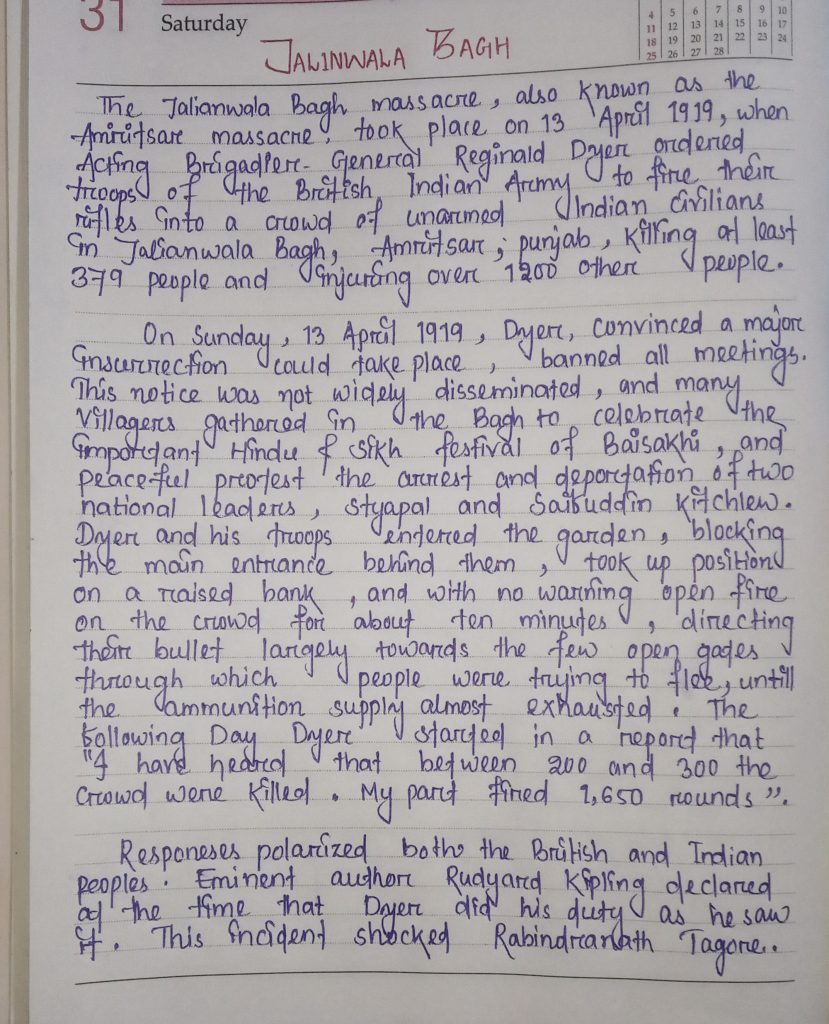 31
Saturday
4 5 6 7 8 9 10
11 12 13 14 15 16 17
18 19 20 21 22 23 24
25 26 27 28
JALINWALA BAGH
The Jalianwala Bagh massacre, also known as the
Amritsar massacre, took place on 13 April 1919, when
Acting Brigadier-General Reginald Dyer ordered
troops of the British Indian Army to fire their
rifles into a crowd of unarmed Indian Civilians
in Jalianwala Bagh, Amritsar, punjab, killing at least
379 people and injuring over 1200 other people.
On Sunday, 13 April 1919, Dyer, convinced a major
insurrection could take place, banned all meetings.
This notice was not widely disseminated, and many
Villagers gathered in the Bagh to celebrate the
important Hindu & Sikh festival of Baisakhi, and
peaceful protest the arrest and deportation of two
national leaders, Styapal and Saibuddin Kitchlew.
Dyer and his troops entered the garden, blocking
the main entrance behind them, took up position
on a raised bank, and with no warning open fire
on the crowd for about ten minutes, directing
their bullet largely towards the few open gates
through which people were trying to flee, untill
the ammunition supply almost exhausted. The
following Day Dyer started in a report that
"I have heard that between 200 and 300 the
crowd were killed. My part fired 1,650 rounds".
Responeses polarized both the British and Indian
peoples. Eminent author Rudyard Kipling declared
at the time that Dyer did his duty as he saw
it. This incident shocked Rabindranath Tagore..